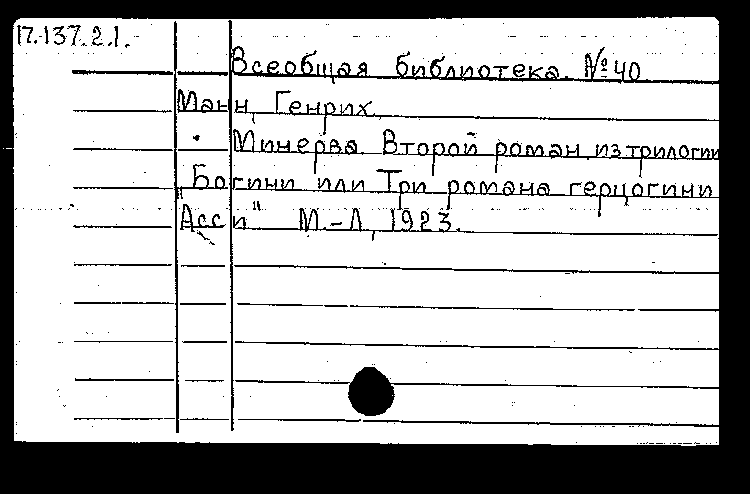 17.137.2.1.
Всеобщая библиотека. № 40
Манн, Генрих.
Минерва. Второй роман из трилогии
"Богини или Три романа герцогини
Асси" М.-Л., 1923.